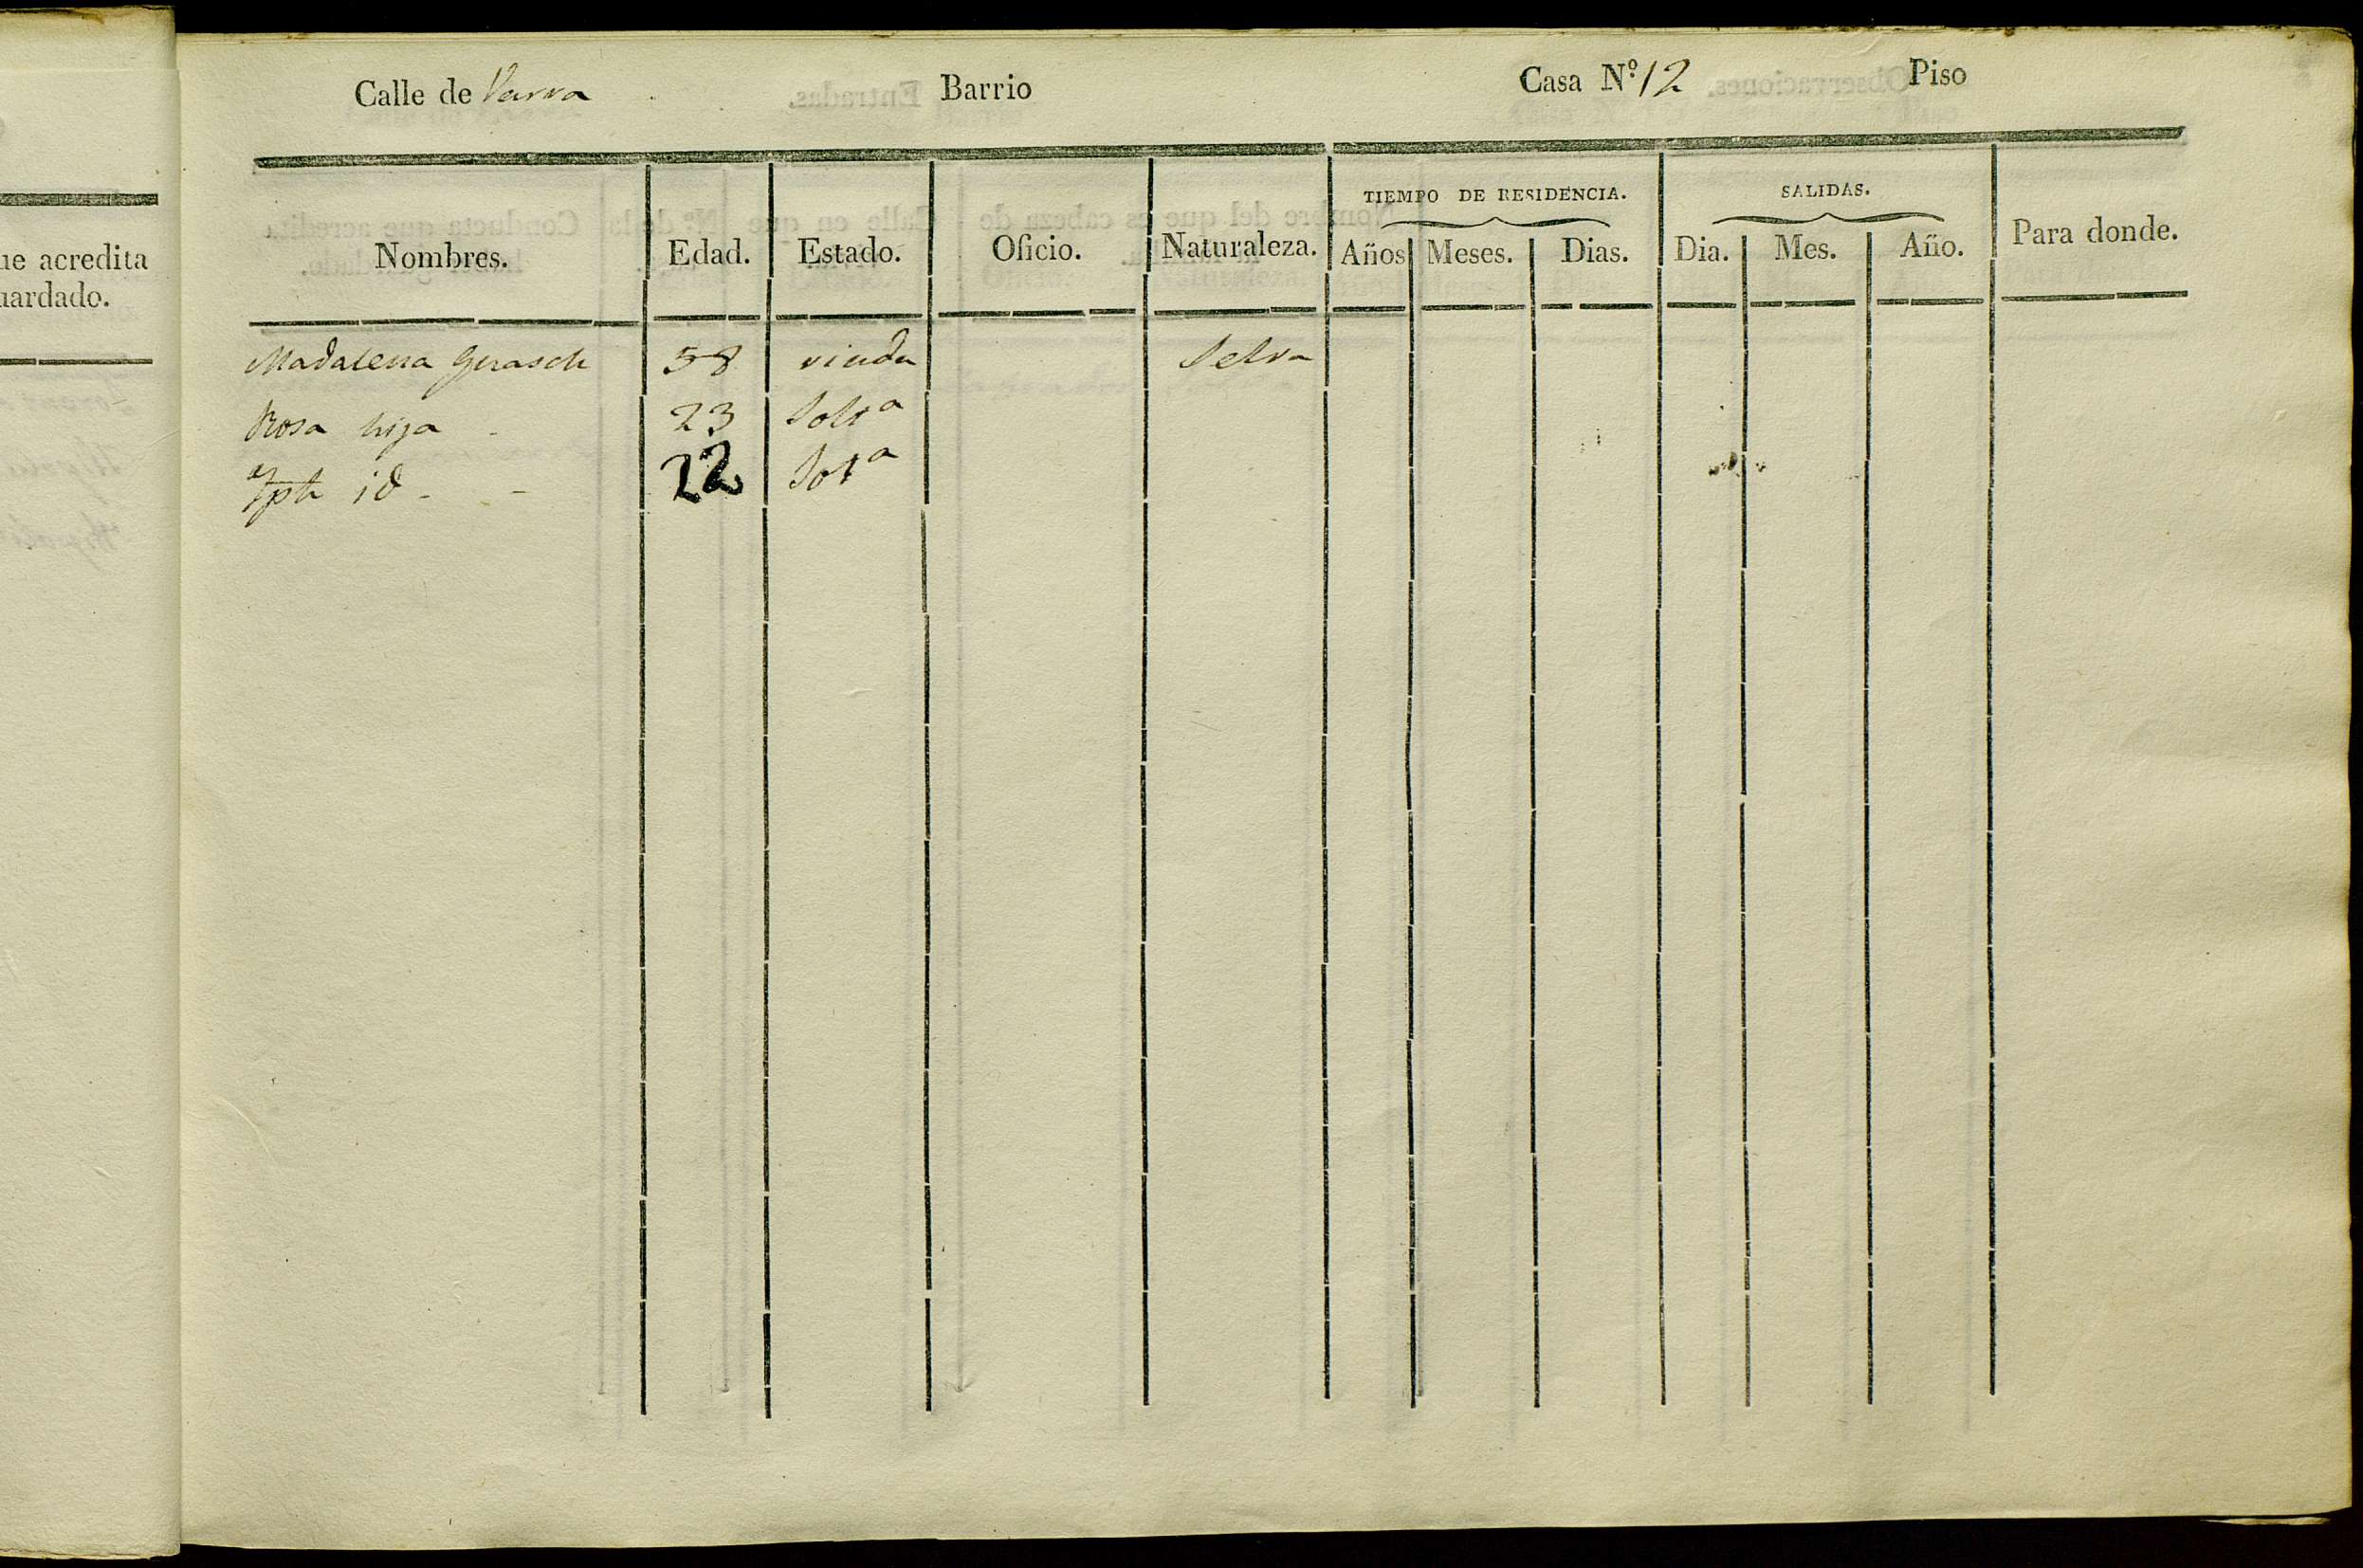 Calle de Parra Barrio Casa Nº 12 Piso
ue acredita
uardado.
TIEMPO DE RESIDENCIA. SALIDAS.
Nombres. Edad. Estado. Oficio. Naturaleza. Años Meses. Dias. Dia. Mes. Año. Para donde.
Madalena 58 viuda Selva
Rosa hija 23 Solt^a
id 22 Sol^a